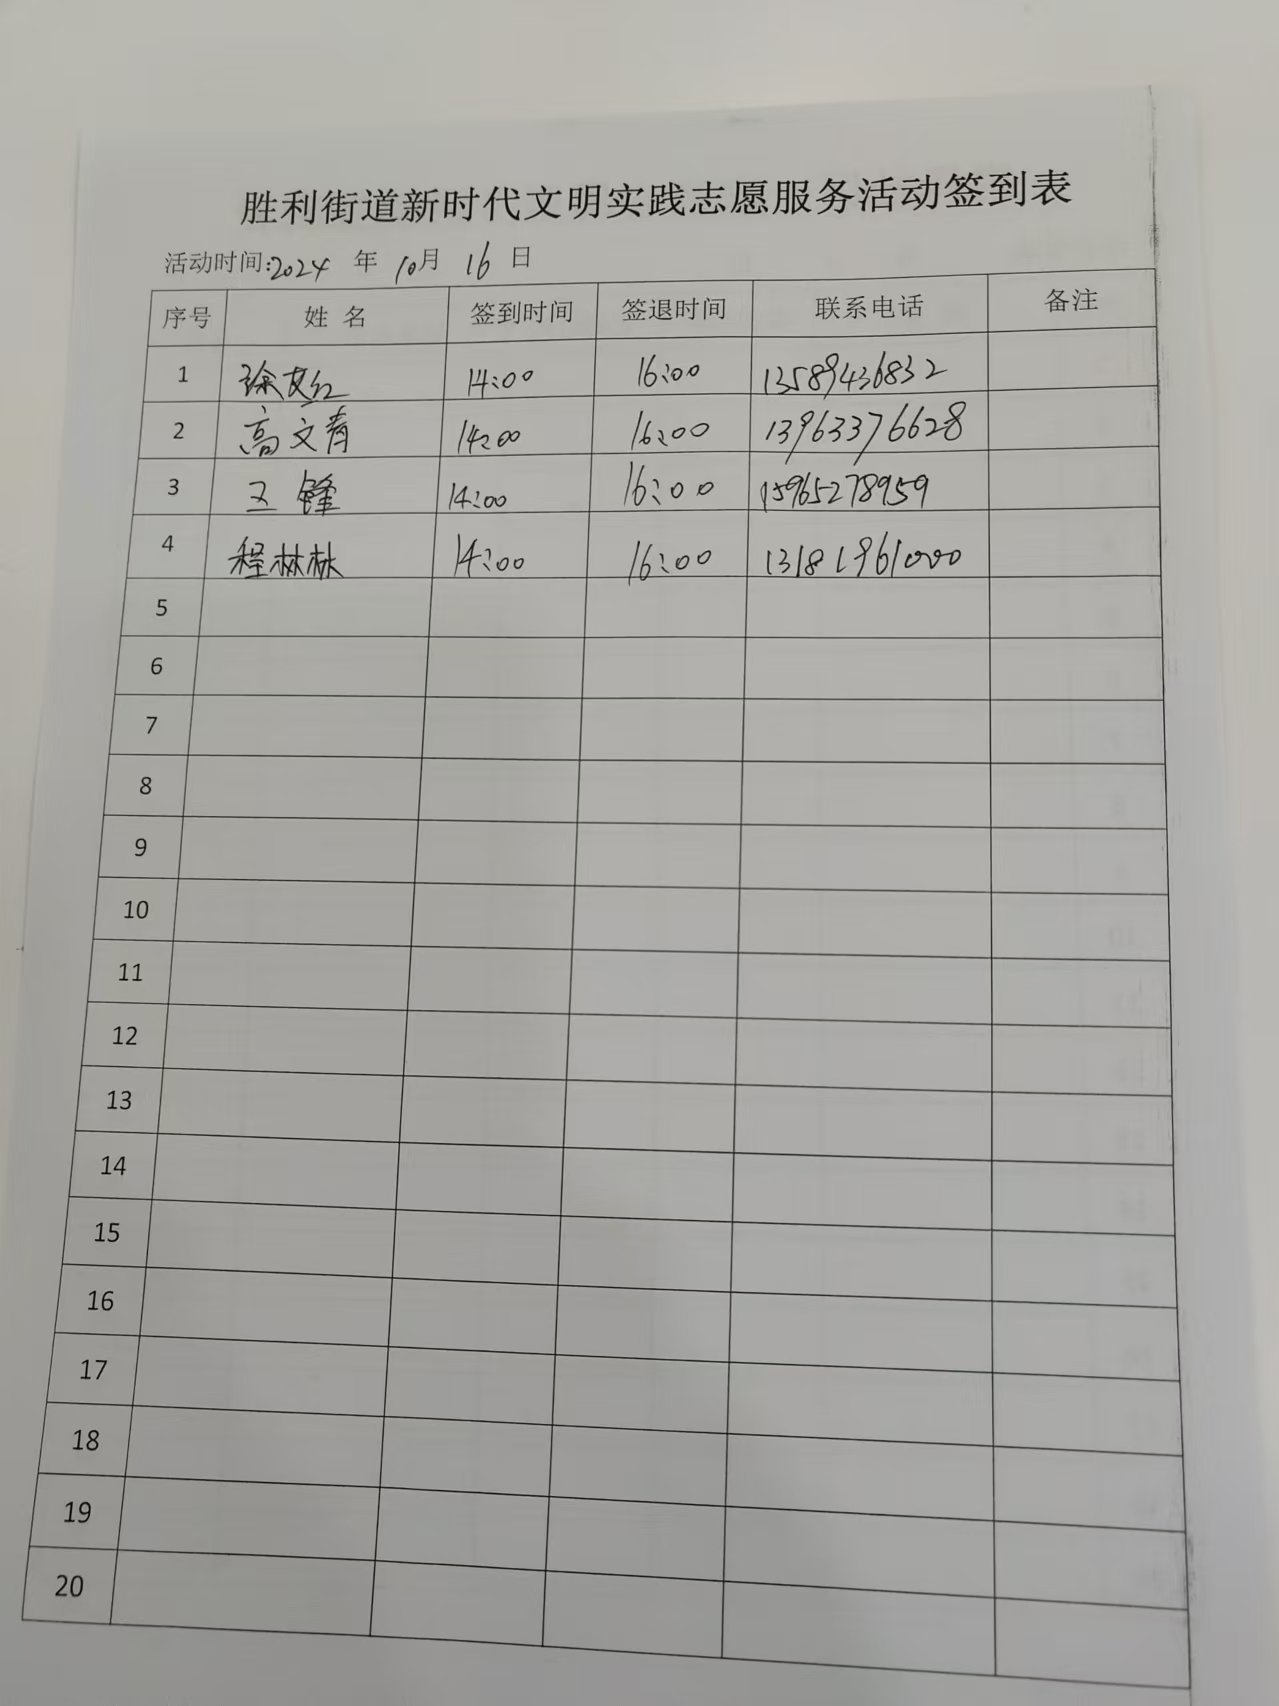 胜利街道新时代文明实践志愿服务活动签到表
活动时间:2024 年 10月 16 日
序号 姓 名 签到时间 签退时间 联系电话 备注
1 徐文红 14:00 16:00 13589436832
2 高文青 14:00 16:00 13963376628
3 王锋 14:00 16:00 15965278959
4 程林林 14:00 16:00 13181961000
5
6
7
8
9
10
11
12
13
14
15
16
17
18
19
20